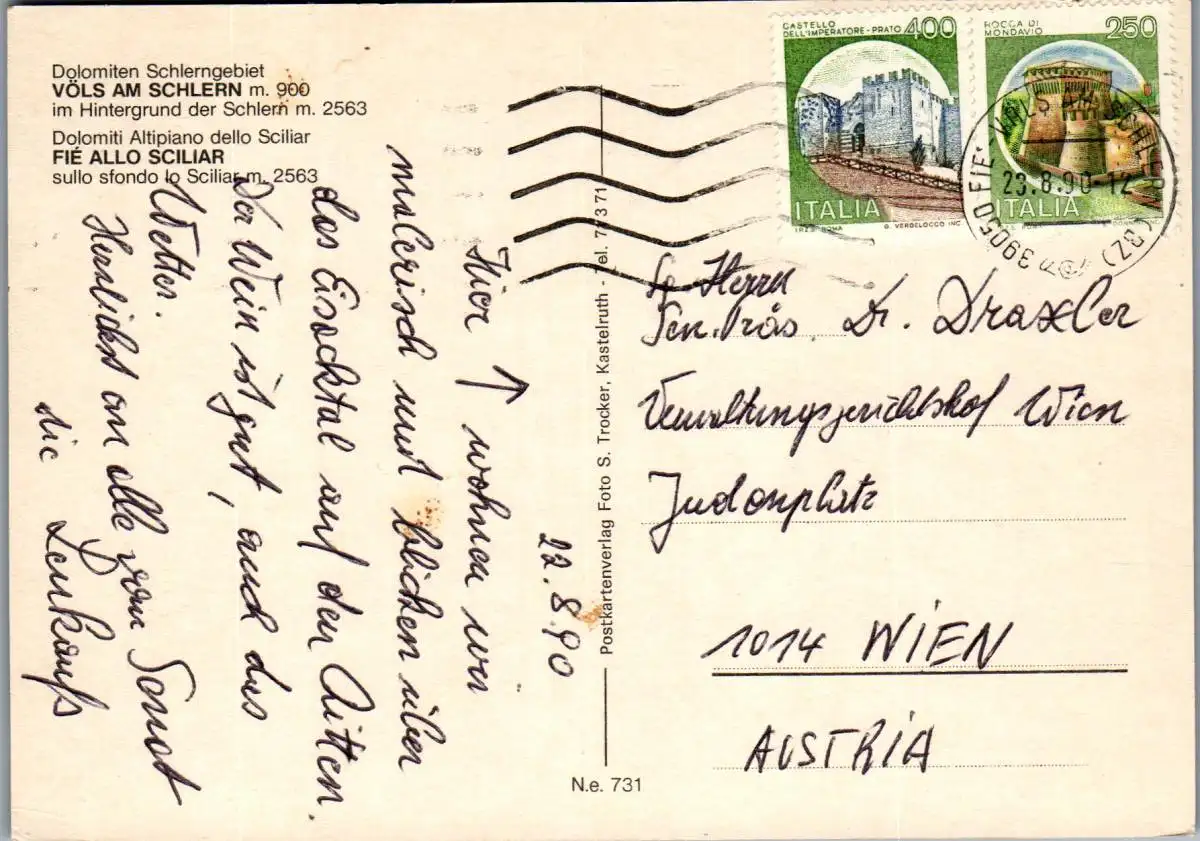 Dolomiten Schlerngebiet
VÖLS AM SCHLERN m. 900
im Hintergrund der Schlern m. 2563
Dolomiti Altipiano dello Sciliar
FIÉ ALLO SCILIAR
sullo sfondo lo Sciliar m. 2563
CASTELLO
DELL'IMPERATORE-PRATO 400
ITALIA
I.P.Z.S. ROMA G. VERDELOCCO INC.
ROCCA DI
MONDAVIO 250
ITALIA
39050 FIE' VÖLS AM SCHLERN (BZ)
23.8.90-12
22.8.90
Hier ↑ wohnen wir
malerisch und blicken über
das Eisacktal auf den Ritten.
Der Wein ist gut, auch das
Wetter.
Herzlichst an alle vom Senat
die
Postkartenverlag Foto S. Trocker, Kastelruth - Tel. 71371
N.e. 731
Herrn
Sen. Präs. Dr. Draxler
Verwaltungsgerichtshof Wien
Judenplatz
1014 WIEN
AUSTRIA